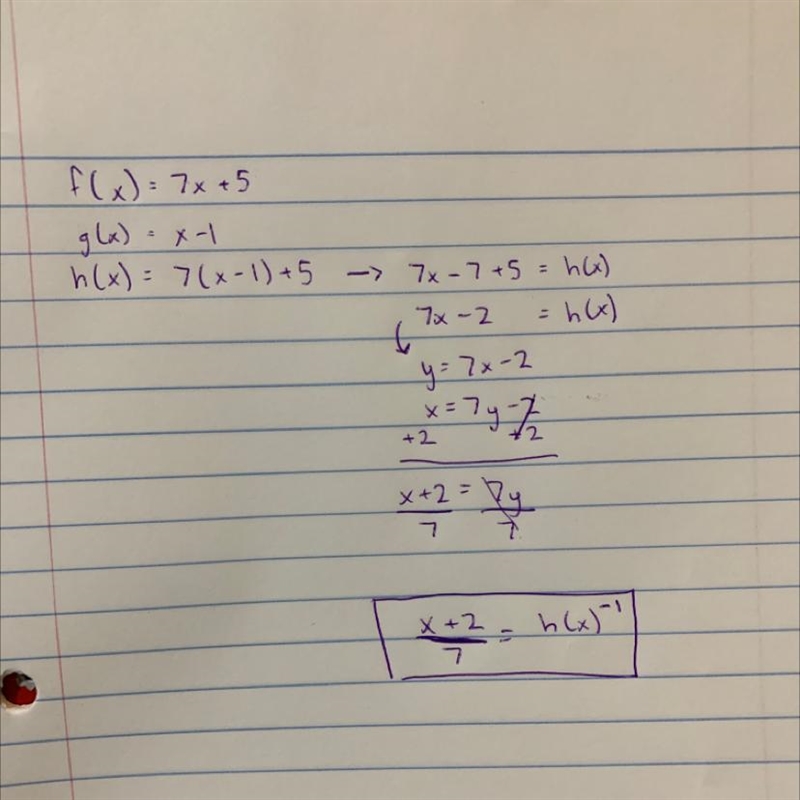 f(x) = 7x + 5
g(x) = x - 1
h(x) = 7(x-1)+5 → 7x - 7 + 5 = h(x)
7x - 2 = h(x)
y = 7x - 2
x = 7y - 2
+2 +2
x+2 = 7y
7 7
x+2 = h(x)⁻¹
7